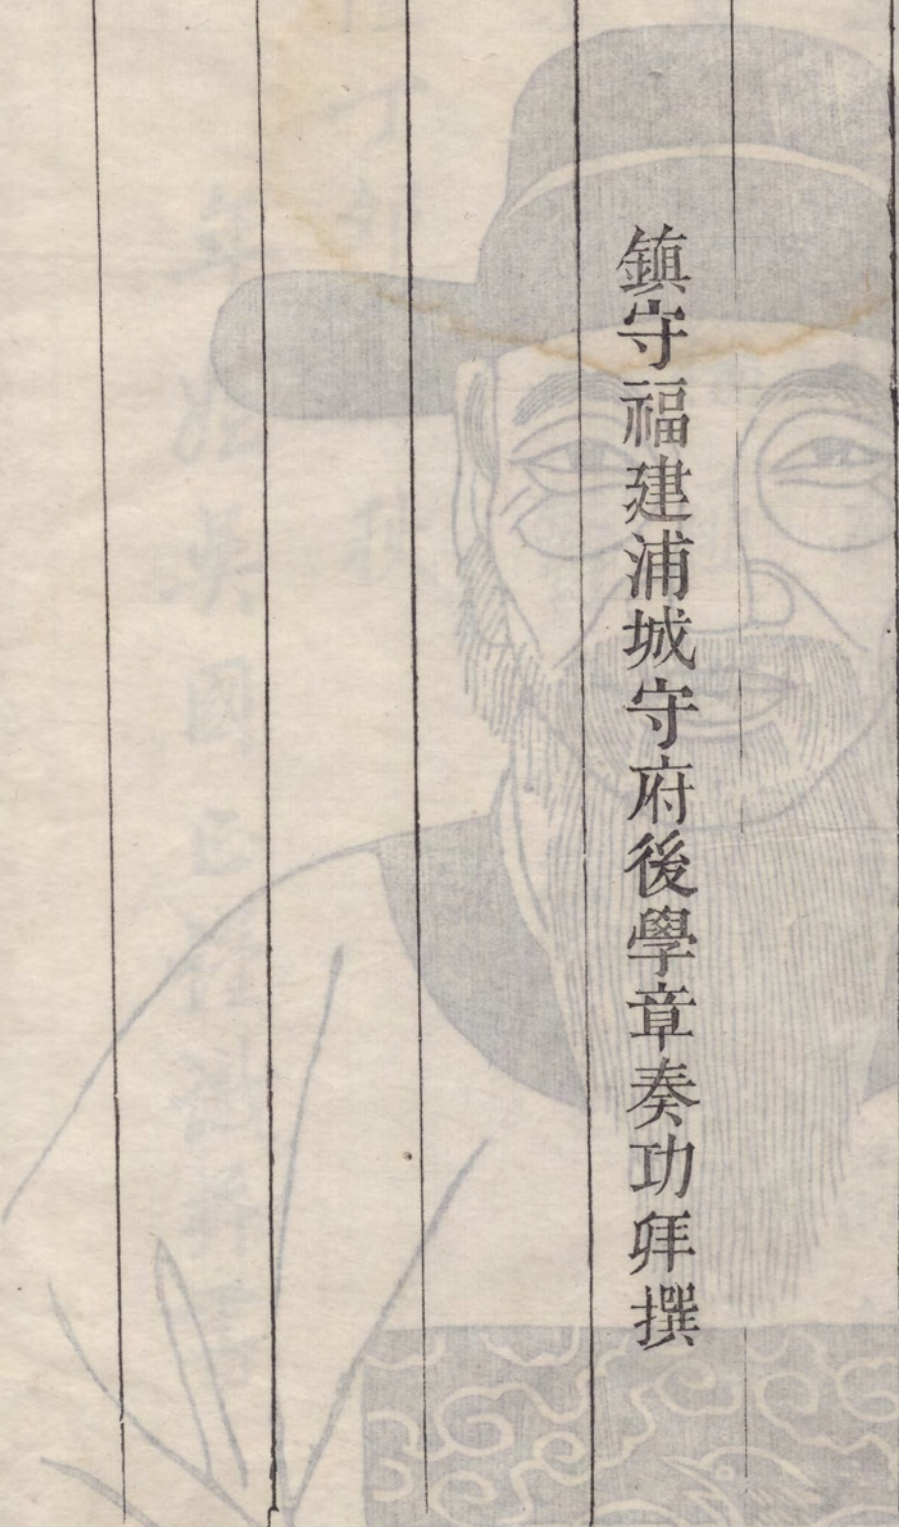 鎮守福建浦城守府後學章奏功拜撰